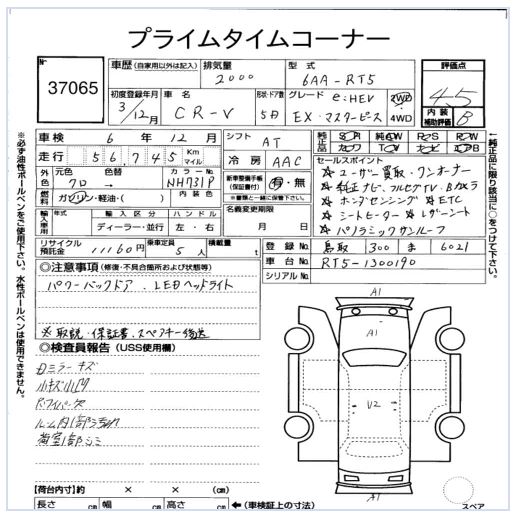 プライムタイムコーナー
No 37065
車歴(自家用以外は記入) 排気量 2000 型式 6AA-RT5 評価点 4.5
初度登録年月 3/12月 車名 CR-V 形状・ドア数 5D グレード e:HEV EX・マスターピース 2WD 4WD 内装補助評価 B
車検 6年12月 シフト AT
純正品 SR AW PS PW カワ TV ナビ エアB
走行 56,745 Km マイル 冷房 AAC
セールスポイント
外色 元色 クロ 色替 → カラーNo. NH731P 新車整備手帳(保証書付) 有・無
※保証書と一緒に保管して下さい。
☆ユーザー買取・ワンオーナー
☆純正ナビ、フルセグTV、Bカメラ
燃料 ガソリン・軽油・( ) 内装色 名義変更期限
☆ホンダセンシング ☆ETC
輸入車用 年式 輸入区分 ディーラー・並行 ハンドル 左・右 月 日
☆シートヒーター ☆レザーシート
☆パノラミックサンルーフ
リサイクル預託金 11160円 乗車定員 5人 積載量 t
登録No. 鳥取 300 ま 6021
車台No. RT5-1300190
シリアルNo.
◎注意事項(修復・不具合箇所および状態等)
パワーバックドア、LEDヘッドライト
※取説・保証書、スペアキー後送
◎検査員報告(USS使用欄)
Dミラーキズ
小キズ小凹
Rワイパー欠
ルーム内1部汚れ
荷室1部シミ
A1
A1
U2
A1
スペア
【荷台内寸】約 × × (cm)
長さ cm 幅 cm 高さ cm ←(車検証上の寸法)
※必ず油性ボールペンをご使用下さい。水性ボールペンは使用できません。
←純正品に限り該当に○をつけて下さい。